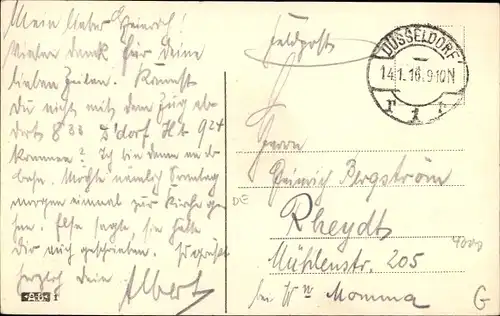 Mein lieber Heinrich!
Vielen Dank für Deine
lieben Zeilen. Kannst
Du nicht mit dem Zug ab
dort 8³³ D'dorf Hbf 9²⁴
kommen? Ich bin dann an der
Bahn. Möchte nämlich Sonntag
morgen einmal zur Kirche ge-
hen. Else sagte, sie hätte
Dir auch geschrieben. Es grüßt
herzlich Dein Albert
Feldpost
DÜSSELDORF
14.1.16. 9-10N
1
Herrn
Heinrich Bergström
Rheydt
Mühlenstr. 205
bei Wwe Momma
DE
G